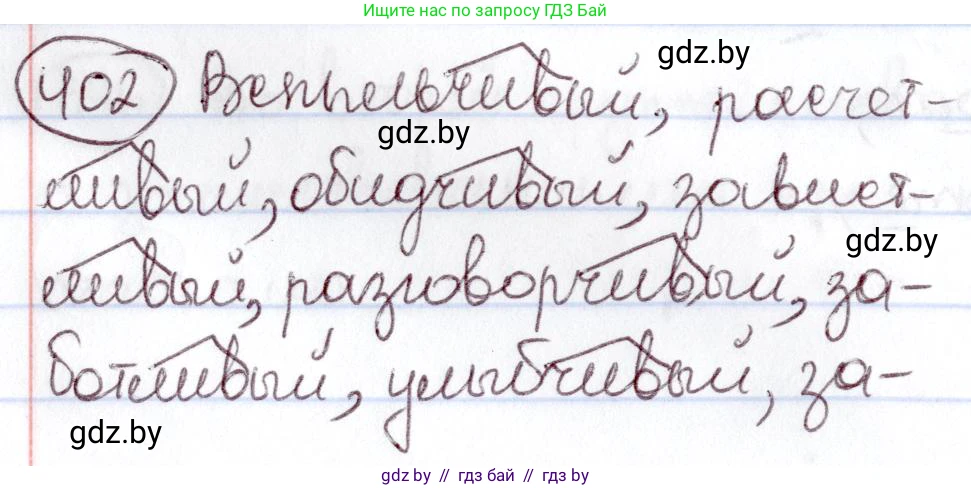 Ищите нас по запросу ГДЗ Бай
402 Вспыльчивый, расчет-
gdz.by
gdz.by
ливый, обидчивый, завист-
gdz.by
ливый, разговорчивый, за-
ботливый, улыбчивый, за-
gdz.by
gdz.by // гдз бай // гдз by